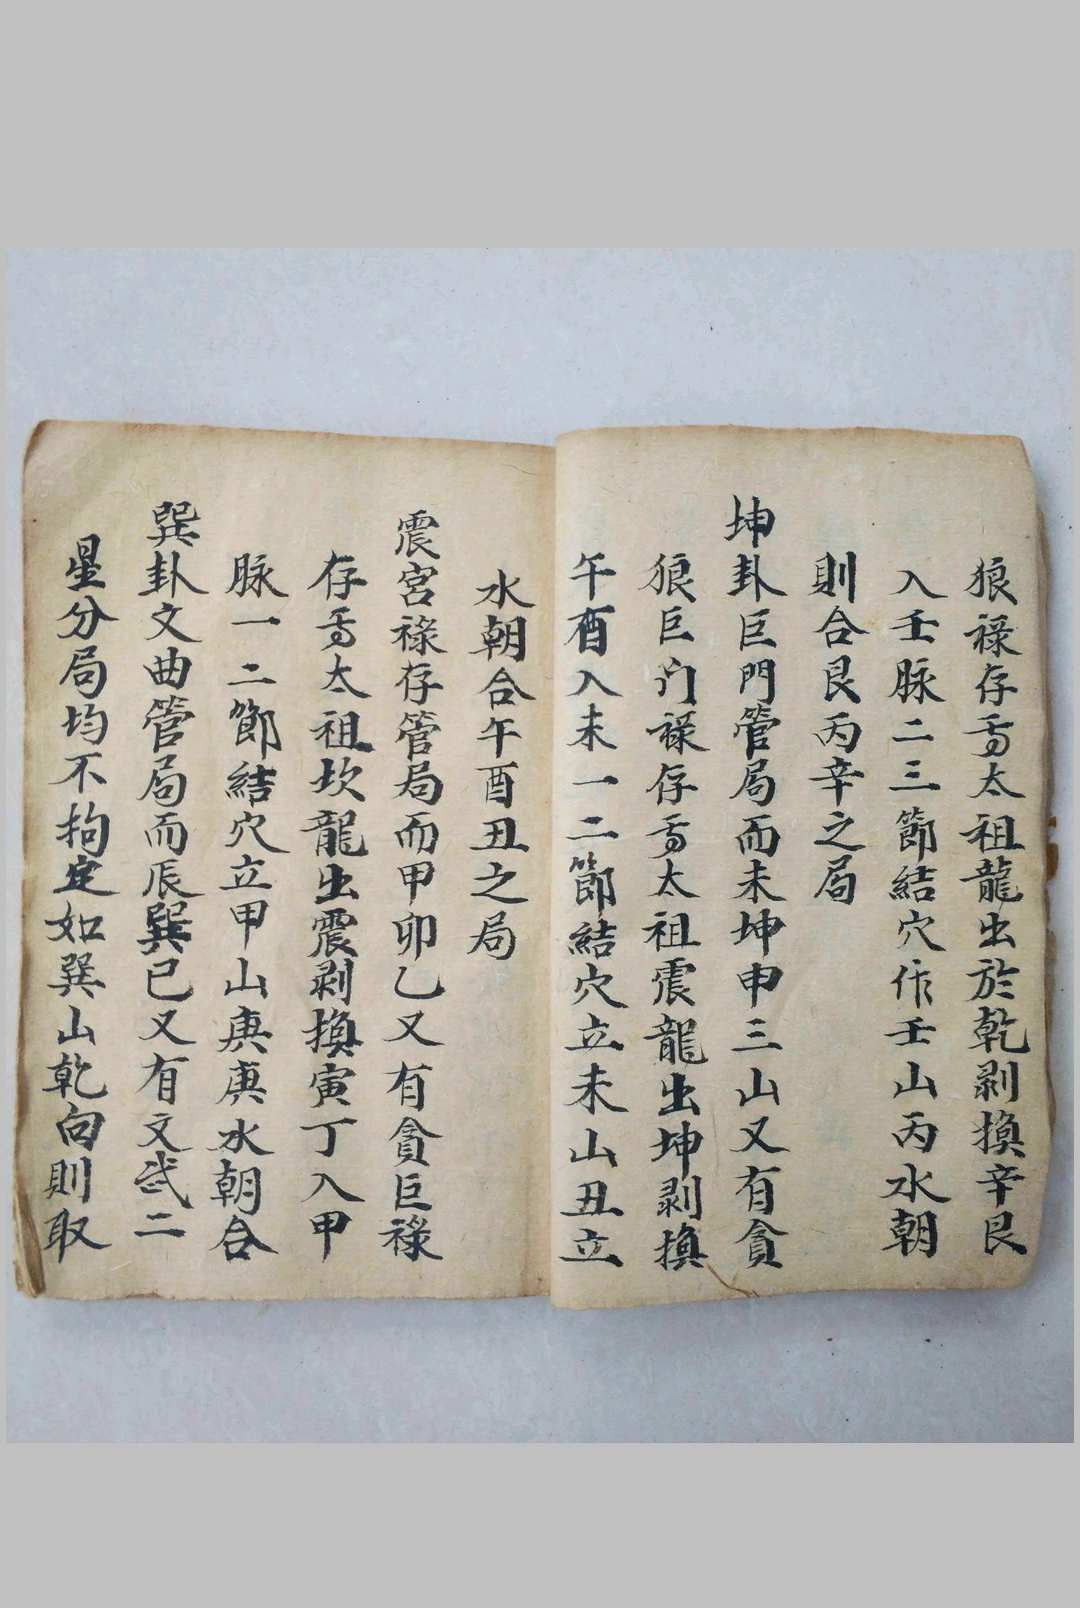 狼祿存為太祖龍出於乾剥換辛艮
入壬脉二三節結穴作壬山丙水朝
則合艮丙辛之局
坤卦巨門管局而未坤申三山又有貪
狼巨门祿存為太祖震龍出坤剥換
午酉入未一二節結穴立未山丑立
水朝合午酉丑之局
震宮祿存管局而甲卯乙又有貪巨祿
存為太祖坎龍出震剥換寅丁入甲
脉一二節結穴立甲山庚庚水朝合
巽卦文曲管局而辰巽巳又有文武二
星分局均不拘定如巽山乾向則取